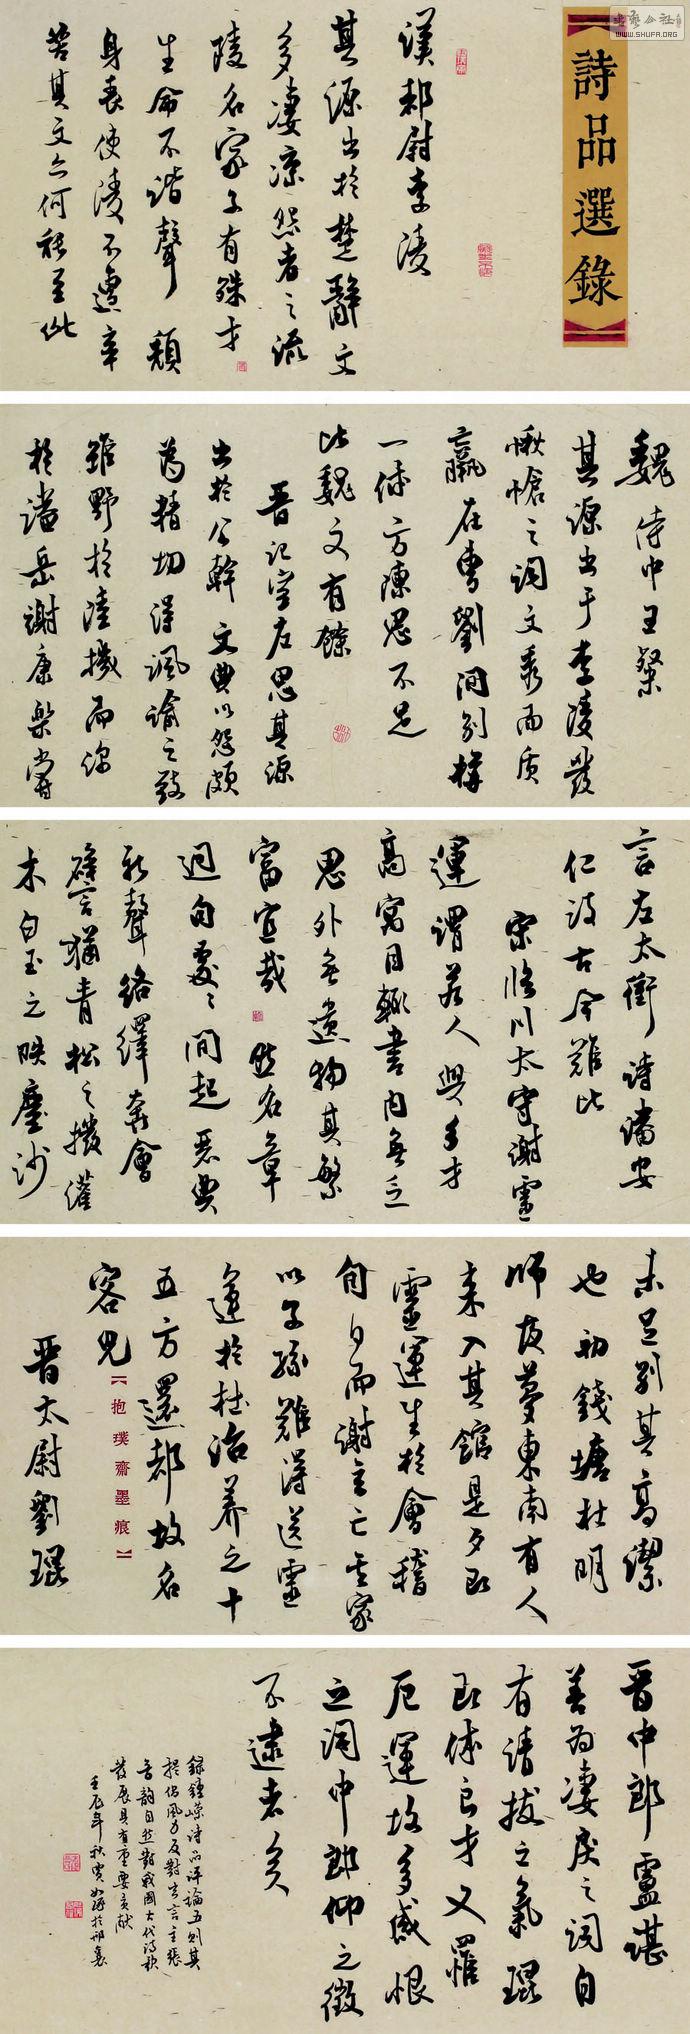 詩品選錄
漢都尉李陵
其源出於楚辭文
多凄涼怨者之流
陵名家子有殊才
生命不諧聲頹
身喪使陵不遭辛
苦其文亦何能至此
魏侍中王粲
其源出于李陵發
愀愴之詞文秀而质
羸在曹劉間別構
一体方陳思不足
比魏文有餘
晋記室左思其源
出於公幹文典以怨頗
为精切得諷諭之致
雖野於陸機而深
於潘岳謝康樂嘗
言左太衝詩潘安
仁詩古今難比
宋臨川太守謝靈
運謂若人興多才
高寓目輒書内無乏
思外無遺物其繁
富宜哉然名章
迥句處々間起麗典
新聲絡繹奔會
譬猶青松之拔灌
木白玉之映塵沙
未足別其高潔
也初錢塘杜明
師夜夢東南有人
来入其館是夕即
靈運生於會稽
旬日而謝玄亡其家
以子孫難得送靈
運於杜治养之十
五方還都故名
客兒
【抱璞齋墨痕】
晋太尉劉琨
晋中郎盧諶
善为凄戾之詞自
有清拔之氣琨
既体良才又罹
厄運故多感恨
之詞中郎仰之微
不逮者矣
録鍾嶸詩品評論五則其
提倡風力反對玄言主張
音韵自然對我國古代詩歌
發展具有重要貢献
壬辰年秋賈
書艺公社
WWW.SHUFA.ORG